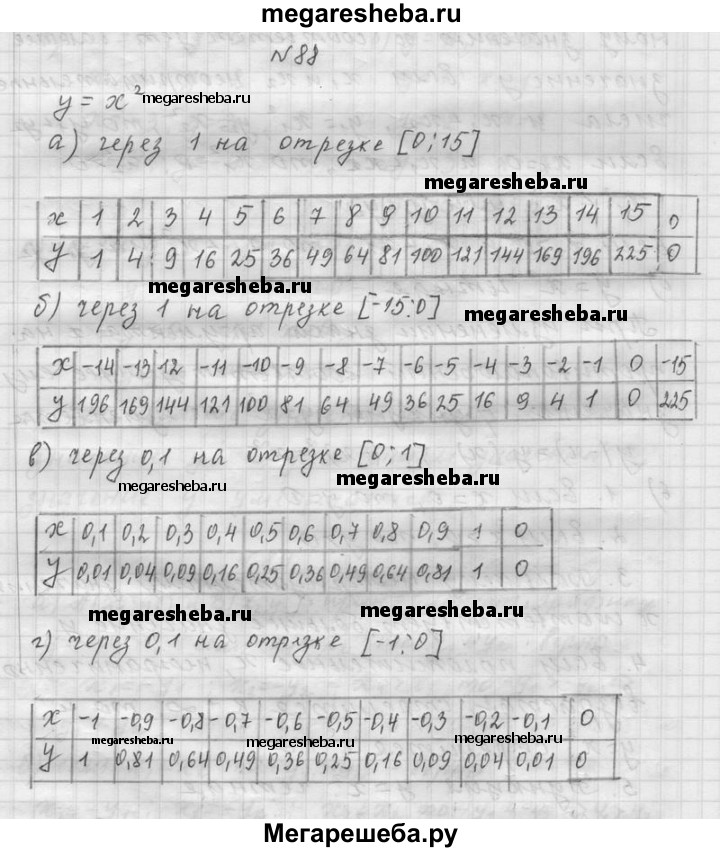 megaresheba.ru
N 88
y = x² megaresheba.ru
а) через 1 на отрезке [0; 15]
megaresheba.ru
x 1 2 3 4 5 6 7 8 9 10 11 12 13 14 15 0
y 1 4 9 16 25 36 49 64 81 100 121 144 169 196 225 0
megaresheba.ru
б) через 1 на отрезке [-15; 0]
megaresheba.ru
x -14 -13 12 -11 -10 -9 -8 -7 -6 -5 -4 -3 -2 -1 0 -15
y 196 169 144 121 100 81 64 49 36 25 16 9 4 1 0 225
в) через 0,1 на отрезке [0; 1]
megaresheba.ru megaresheba.ru
x 0,1 0,2 0,3 0,4 0,5 0,6 0,7 0,8 0,9 1 0
y 0,01 0,04 0,09 0,16 0,25 0,36 0,49 0,64 0,81 1 0
megaresheba.ru megaresheba.ru
г) через 0,1 на отрезке [-1; 0]
x -1 -0,9 -0,8 -0,7 -0,6 -0,5 -0,4 -0,3 -0,2 -0,1 0
megaresheba.ru megaresheba.ru megaresheba.ru
y 1 0,81 0,64 0,49 0,36 0,25 0,16 0,09 0,04 0,01 0
Мегарешеба.ру